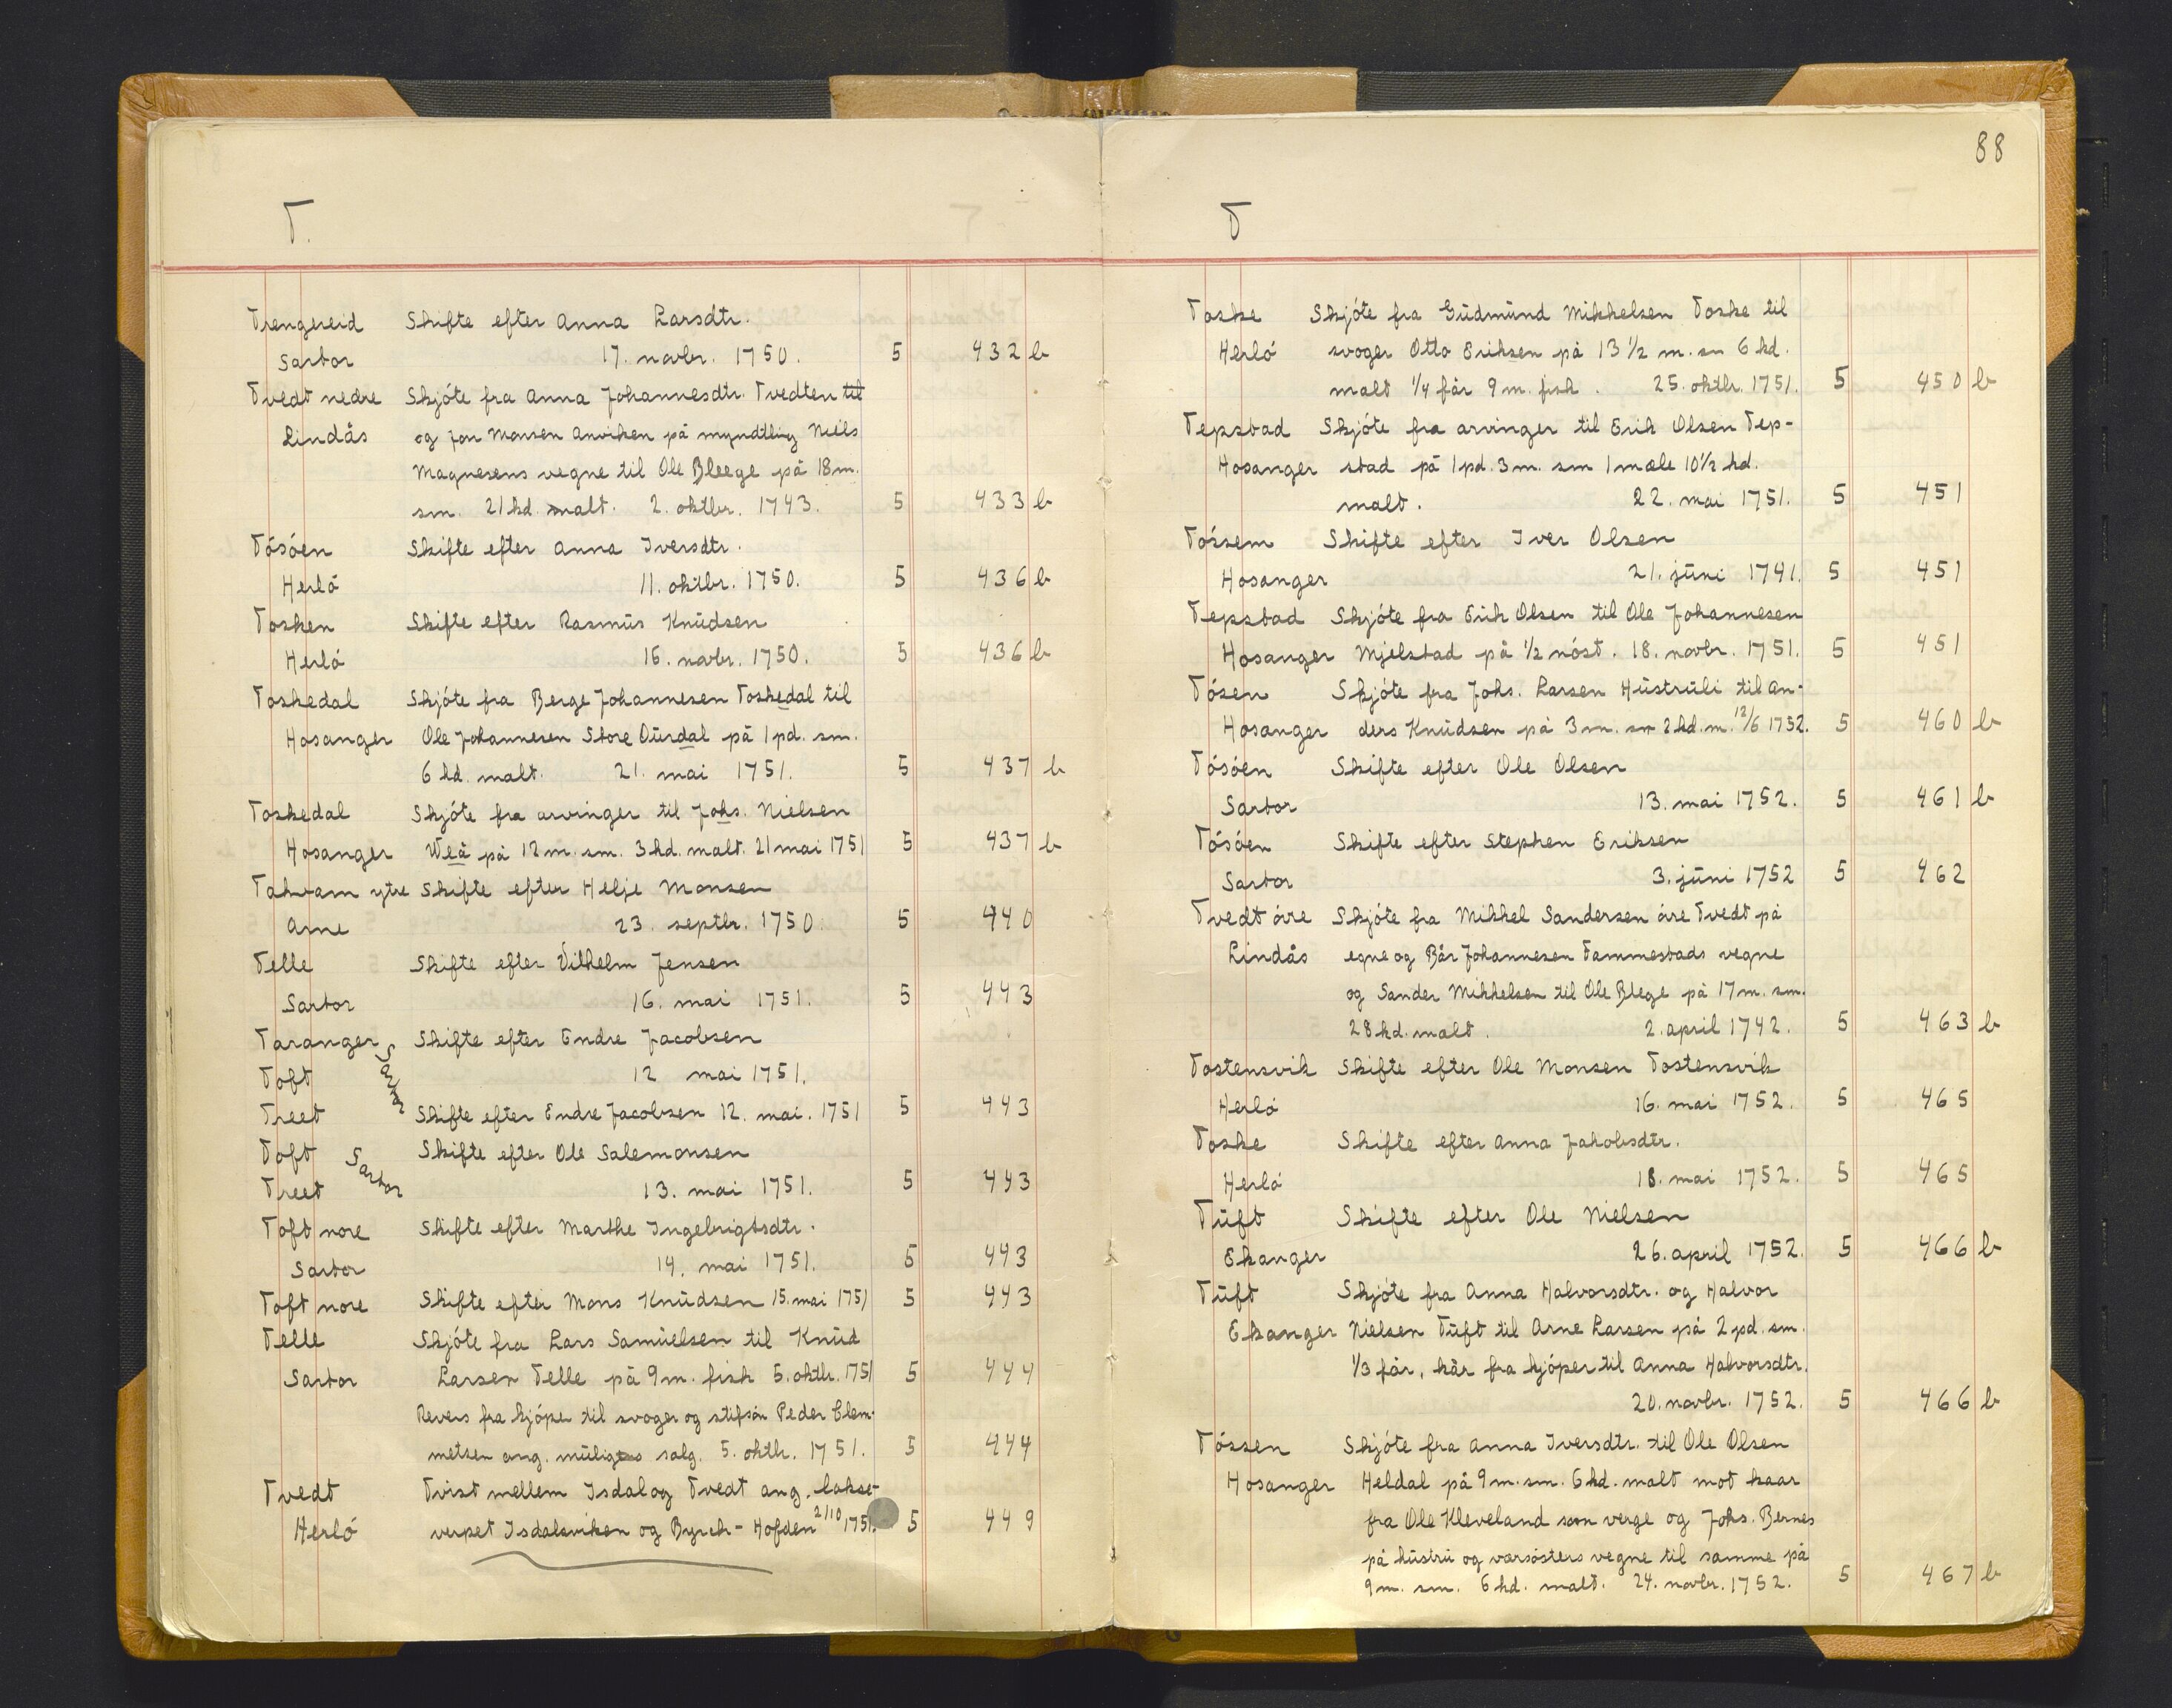 T.
Trengereid Skifte efter Anna Larsdtr.
Sartor 17. novbr. 1750. 5 432 b
Tvedt nedre Skjóte fra Anna Johannesdtr. Tvedten til
Lindås og Jon Monsen Anviken på myndtling Niels
Magnesens vegne til Ole Bleege på 18 m.
sm. 21 kd. malt. 2. oktbr. 1743. 5 433 b
Tósóen Skifte efter Anna Iversdtr.
Herló 11. oktbr. 1750. 5 436 b
Tosken Skifte efter Rasmus Knudsen
Herló 16. novbr. 1750. 5 436 b
Toskedal Skjóte fra Berge Johannesen Toskedal til
Hosanger Ole Johannesen Store Ourdal på 1 pd. sm.
6 kd. malt. 21. mai 1751. 5 437 b
Toskedal Skjóte fra arvinger til Johs. Nielsen
Hosanger Weå på 12 m. sm. 3 kd. malt. 21 mai 1751 5 437 b
Takvam ytre Skifte efter Helje Monsen
Arne 23. septbr. 1750. 5 440
Telle Skifte efter Vilhelm Jensen
Sartor 16. mai 1751. 5 443
Taranger Skifte efter Endre Jacobsen
Toft Sartor 12 mai 1751.
Treet Skifte efter Endre Jacobsen 12. mai. 1751 5 443
Toft Sartor Skifte efter Ole Salemonsen
Treet 13. mai 1751. 5 443
Toft nore Skifte efter Marthe Ingebrigtsdtr.
Sartor 14. mai 1751. 5 443
Toft nore Skifte efter Mons Knudsen 15. mai 1751 5 443
Telle Skjóte fra Lars Samuelsen til Knud
Sartor Larsen Telle på 9 m. fisk 5. oktbr. 1751 5 444
Revers fra kjóper til svoger og stifsón Peder Clem-
metsen ang. muligens salg. 5. oktbr. 1751. 5 444
Tvedt Tvist mellem Isdal og Tvedt ang. lakse-
Herló verpet Isdalsviken og Byrch-Hofden 2/10 1751. 5 449
88
T
Toske Skjóte fra Gudmund Mikkelsen Toske til
Herló svoger Otto Eriksen på 13 1/2 m. sm 6 kd.
malt 1/4 får 9 m. fisk. 25. oktbr. 1751. 5 450 b
Tepstad Skjóte fra arvinger til Erik Olsen Tep-
Hosanger stad på 1 pd. 3 m. sm 1 mæle 10 1/2 kd.
malt. 22. mai 1751. 5 451
Tóssem Skifte efter Iver Olsen
Hosanger 21. juni 1741. 5 451
Tepstad Skjóte fra Erik Olsen til Ole Johannesen
Hosanger Mjelstad på 1/2 nóst. 18. novbr. 1751. 5 451
Tósen Skjóte fra Johs. Larsen Hustruli til An-
Hosanger ders Knudsen på 3 m. sm 2 kd. m. 12/6 1752. 5 460 b
Tósóen Skifte efter Ole Olsen
Sartor 13. mai 1752. 5 461 b
Tósóen Skifte efter Stephen Eriksen
Sartor 3. juni 1752 5 462
Tvedt óvre Skjóte fra Mikkel Sandersen óvre Tvedt på
Lindås egne og Bår Johannesen Tammestads vegne
og Sander Mikkelsen til Ole Blege på 17 m. sm.
28 kd. malt. 2. april 1742. 5 463 b
Tostensvik Skifte efter Ole Monsen Tostensvik
Herló 16. mai 1752. 5 465
Toske Skifte efter Anna Jakobsdtr.
Herló 18. mai 1752. 5 465
Tuft Skifte efter Ole Nielsen
Ekanger 26. april 1752. 5 466 b
Tuft Skjóte fra Anna Halvorsdtr. og Halvor
Ekanger Nielsen Tuft til Arne Larsen på 2 pd. sm.
1/3 får, kår fra kjóper til Anna Halvorsdtr.
20. novbr. 1752. 5 466 b
Tóssen Skjóte fra Anna Iversdtr. til Ole Olsen
Hosanger Heldal på 9 m. sm. 6 kd. malt mot kaar
fra Ole Kleveland som verge og Johs. Bernes
på hustru og varsósters vegne til samme på
9 m. sm. 6 kd. malt. 24. novbr. 1752. 5 467 b